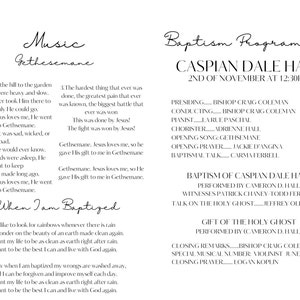 Music
Gethsemane
the hill to the garden
were heavy and slow.
er took Him there to
ly He could go.
us loves me, He went
to Gethsemane.
t was sad, wicked, or
bad,
e would ever know.
ds were asleep, He
nt to keep
made long ago.
us loves me, He went
to Gethsemane.
3.The hardest thing that ever was
done, the greatest pain that ever
was known, the biggest battle that
ever was
This was done by Jesus!
The fight was won by Jesus!
Gethsemane. Jesus loves me, so he
gave His gift to me in Gethsemane
Gethsemane. Jesus loves me, so He
gave His gift to me in Gethsemane.
When I am Baptized
like to look for rainbows whenever there is rain
onder on the beauty of an earth made clean again.
nt my life to be as clean as earth right after rain.
nt to be the best I can and live with God again.
w when I am baptized my wrongs are washed away,
I can be forgiven and improve myself each day.
nt my life to be as clean as earth right after rain.
nt to be the best I can and live with God again.
Baptism Program
CASPIAN DALE HA
2ND OF NOVEMBER AT 12:30P
PRESIDING..... BISHOP CRAIG COLEMAN
CONDUCTING..... BISHOP CRAIG COLEMAN
PIANIST.....LA'RUE PASCHAL
CHORISTER..... ADRIENNE HALL
OPENING SONG: GETHSEMANE
OPENING PRAYER..... JACKIE D'ANGINA
BAPTISMAL TALK..... CARMA FERRELL
BAPTISM OF CASPIAN DALE HA
PERFORMED BY CAMERON D. HAL
WITNESSES PATRICK CHANEY, TODD FER
TALK ON THE HOLY GHOST.......JEFFREY OL
GIFT OF THE HOLY GHOST
PERFORMED BY CAMERON D. HALL
CLOSING REMARKS.....BISHOP CRAIG COLE
SPECIAL MUSICAL NUMBER: VIOLINIST JUNE
CLOSING PRAYER..... LOGAN KOPLIN